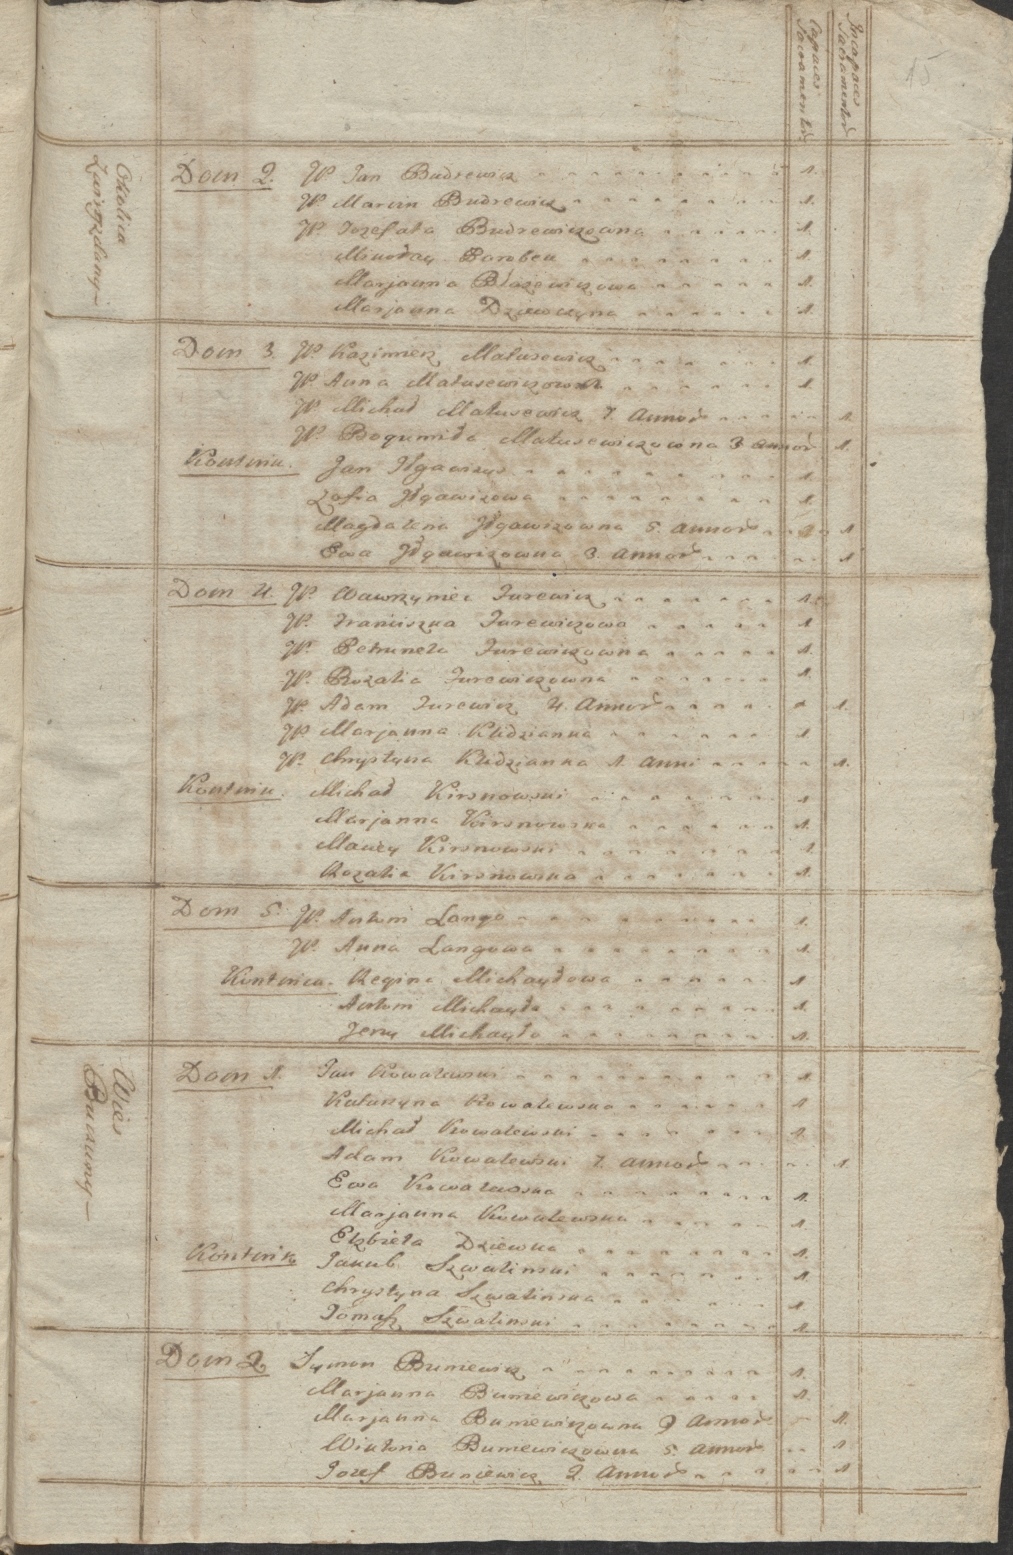 15
Capaces Sacramentor
Incapaces Sacramentor
Okolica
Dom 2. JP. Jan Budrewicz 1.
JP. Marcin Budrewicz 1.
JP. Jozefata Budrewiczowna 1.
Mikołay Parobek 1.
Marjanna Błażewiczowa 1.
Marjanna Dziewczyna 1.
Dom 3. JP. Kazimierz Matusewicz 1.
JP. Anna Matusewiczowa 1.
JP. Michał Matusewicz 7. Annor 1.
JP. Bogumiła Matusewiczowna 3 annor 1.
Kontnik. Jan 1.
Zofia 1.
Magdalena 5. annor 1
Ewa 3. annor 1
Dom 4. JP. Wawrzyniec Jurewicz 1.
JP. Franciszka Jurewiczowa 1
JP. Petrunela Jurewiczowna 1.
JP. Rozalia Jurewiczowna 1.
JP. Adam Jurewicz 4. Annor 1.
JP. Marjanna 1
JP. Chrystyna 1. anni 1.
Kontnik. Michał Kirsnowski 1.
Marjanna Kirsnowska 1.
Maciey Kirsnowski 1.
Rozalia Kirsnowska 1.
Dom 5. JP. Antoni Lango 1.
JP. Anna Langowa 1.
Kontnica. Regina Michayłowa 1
Antoni Michayło 1.
Jerzy Michayło 1.
Wieś
Dom 1. Jan Kowalewski 1
Katarzyna Kowalewska 1
Michał Kowalewski 1.
Adam Kowalewski 7. annor 1.
Ewa Kowalewska 1.
Marjanna Kowalewska 1.
Elżbieta Dziewka 1.
Kontnik Jakub Szwalinski 1.
Chrystyna Szwalinska 1.
Tomasz Szwalinski 1.
Dom 2. Symon Buniewicz 1.
Marjanna Buniewiczowa 1.
Marjanna Buniewiczowna 9 Annor 1.
Wiktoria Buniewiczowna 5. annor 1
Jozef Buniewicz 2. Annor 1